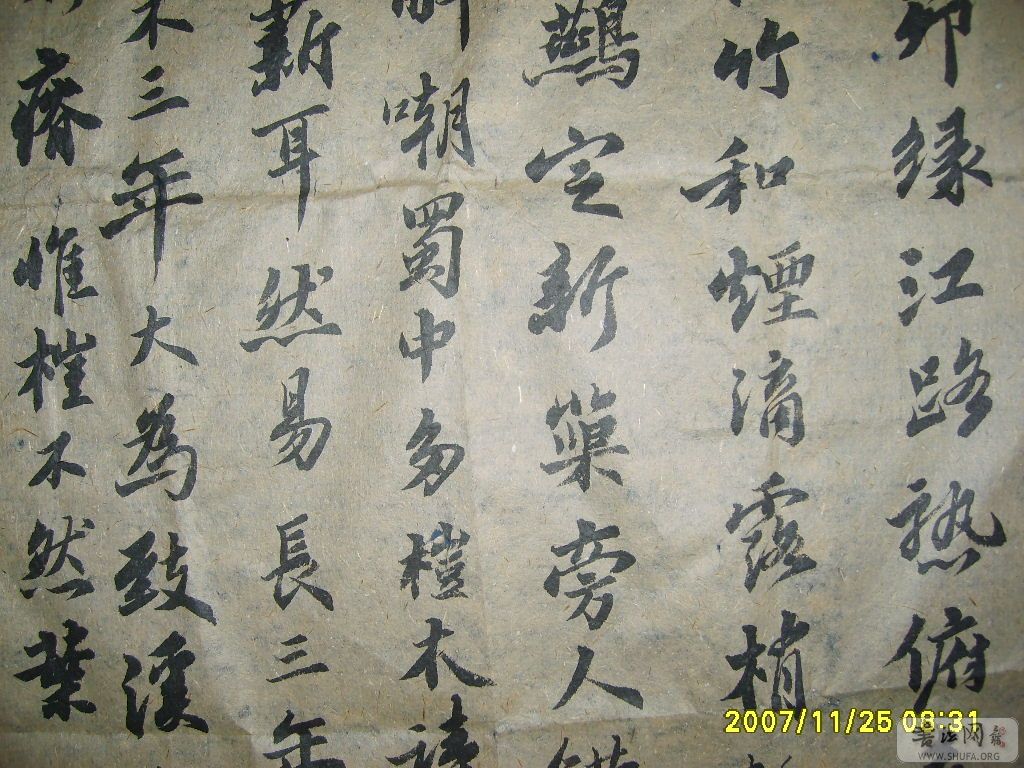 卯缘江路熟俯
竹和煙滴露梢
鷰定新巢旁人
嘲蜀中多榿木讀
薪耳然易長三年
木三年大為致溪
瘠惟榿不然葉
2007/11/25 08:31
書法网
WWW.SHUFA.ORG